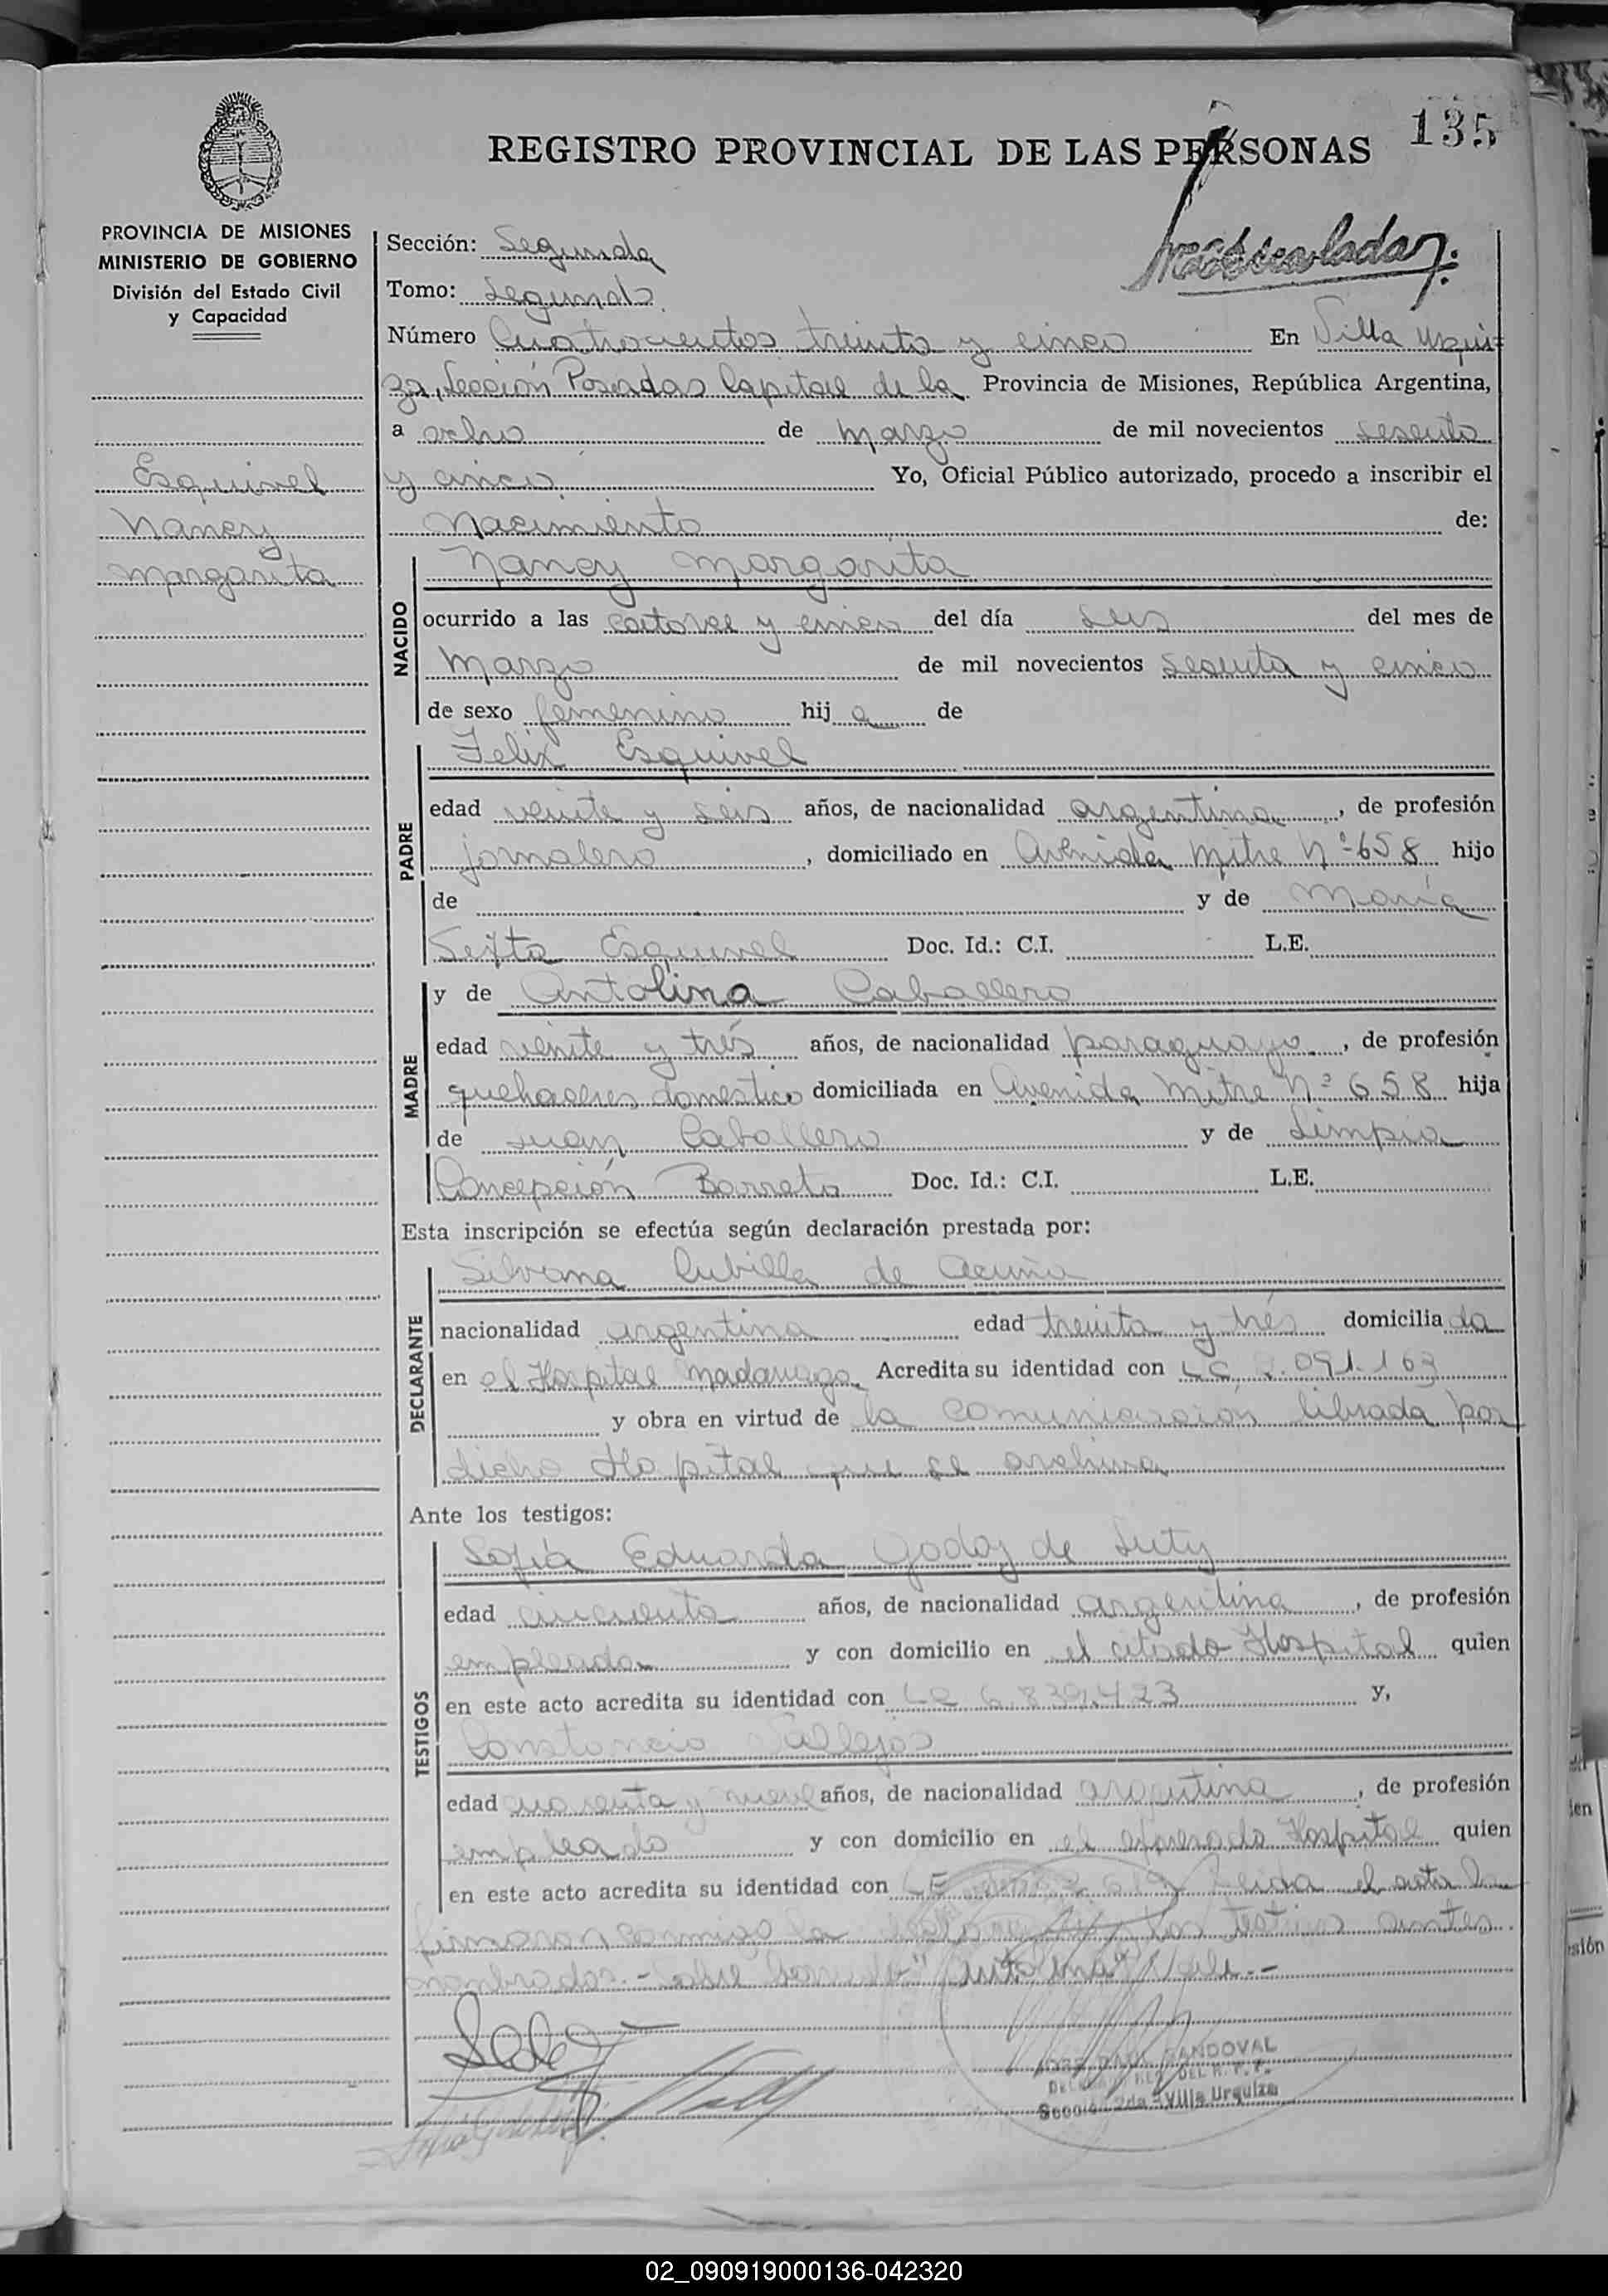 135
REGISTRO PROVINCIAL DE LAS PERSONAS
PROVINCIA DE MISIONES
MINISTERIO DE GOBIERNO
División del Estado Civil
y Capacidad
Esquivel
Nancy
Margarita
Sección: Segunda
Tomo: Segundo
Número Cuatrocientos treinta y cinco En Villa Urqui-
za, Sección Posadas Capital de la Provincia de Misiones, República Argentina,
a ocho de Marzo de mil novecientos sesenta
y cinco. Yo, Oficial Público autorizado, procedo a inscribir el
Nacimiento de:
NACIDO
Nancy Margarita
ocurrido a las catorce y cinco del día seis del mes de
Marzo de mil novecientos sesenta y cinco
de sexo femenino hij a de
PADRE
Felix Esquivel
edad veinte y seis años, de nacionalidad argentina, de profesión
jornalero, domiciliado en Avenida Mitre Nº 658 hijo
de y de María
Sexta Esquivel Doc. Id.: C.I. L.E.
MADRE
y de Antolina Caballero
edad veinte y trés años, de nacionalidad paraguaya, de profesión
quehaceres domestico domiciliada en Avenida Mitre Nº 658 hija
de Juan Caballero y de Limpia
Concepción Barreto Doc. Id.: C.I. L.E.
Esta inscripción se efectúa según declaración prestada por:
DECLARANTE
Silvana Cubilla de Acuña
nacionalidad argentina edad treinta y trés domicilia da
en el Hospital Madariaga. Acredita su identidad con LC .091.163
y obra en virtud de la comunicación librada por
dicho Hospital que se archiva
Ante los testigos:
TESTIGOS
Sofía Eduarda Godoy de
edad cincuenta años, de nacionalidad argentina, de profesión
empleada y con domicilio en el citado Hospital quien
en este acto acredita su identidad con LC 6.839.423 y,
Constancio Vallejos
edad cuarenta y nueve años, de nacionalidad argentina, de profesión
empleado y con domicilio en el Hospital quien
en este acto acredita su identidad con LE Leida el acta la
firmaran conmigo la los testigos antes
nombrados.- Sobre "Antolina" Vale.-
JOSE RAUL SANDOVAL
DEL R.P.P.
Sección 2da - Villa Urquiza
02_090919000136-042320